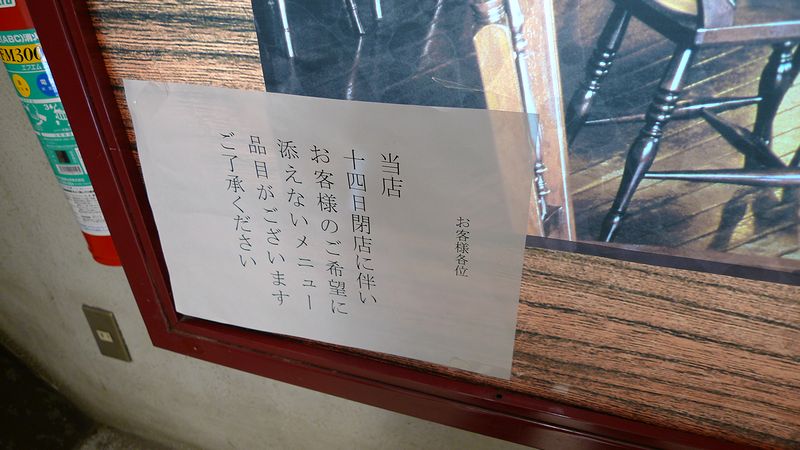 お客様各位
当店
十四日閉店に伴い
お客様のご希望に
添えないメニュー
品目がございます
ご了承ください
(ABC)消火
EM300
エフエム